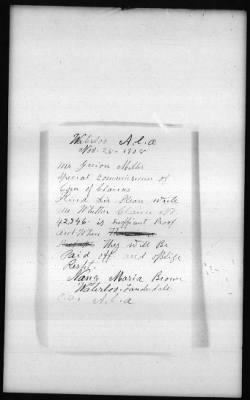 Waterloo Ala
Nov. 28 - 1908
Mr Guion Miller
Special Commissioner of
Kind Sir Please write
me Whether Claim No
42246 is sufficient Proof
and When
They will Be
Paid off and oblige
Resp
Nancy Maria Brown
Waterloo, Lauderdale
Co. Ala